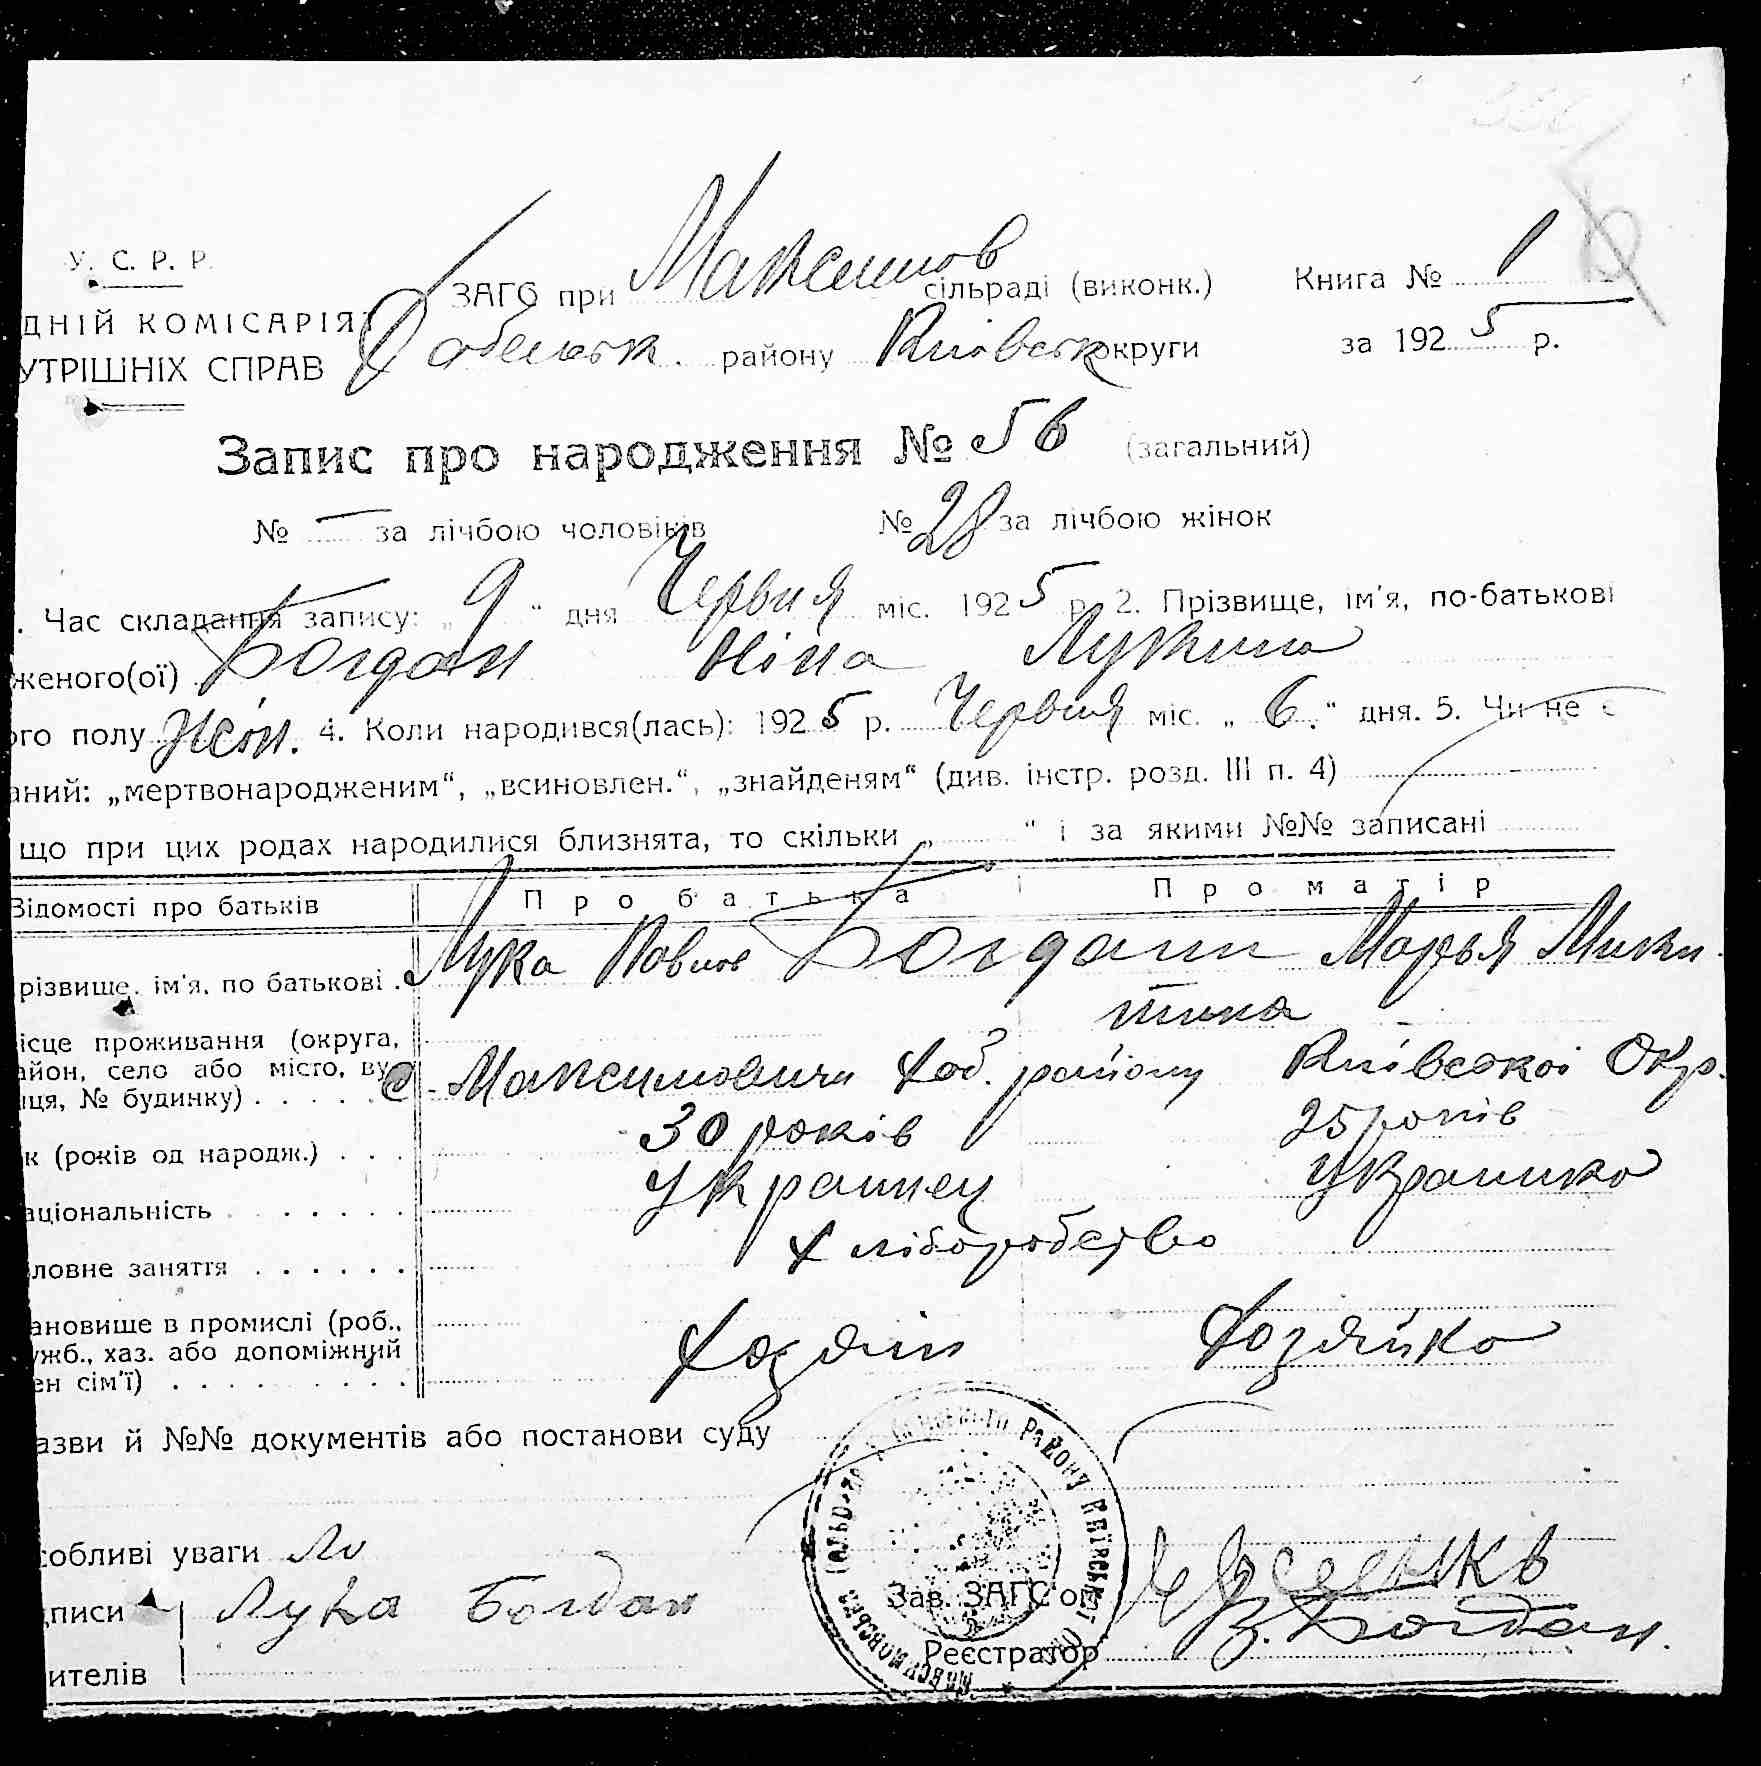 У. С. Р. Р.
ЗАГС при Максимов сільраді (виконк.) Книга № 1
ДНІЙ КОМІСАРІЯ
Хабенськ. району Київськ округи за 1925 р.
УТРІШНІХ СПРАВ
Запис про народження № 56 (загальний)
№ — за лічбою чоловіків № 28 за лічбою жінок
. Час складання запису: „ 9 “ дня Червня міс. 1925 р. 2. Прізвище, ім'я, по-батькові
женого(ої) Богдан Ніна Лукина
ого полу жін. 4. Коли народився(лась): 1925 р. Червня міс. „ 6. “ дня. 5. Чи не є
аний: „мертвонародженим“, „всиновлен.“, „знайденям“ (див. інстр. розд. III п. 4)
що при цих родах народилися близнята, то скільки „ “ і за якими №№ записані
Відомості про батьків Про батька Про матір
різвище, ім'я, по батькові . Лука Павлов Богдани Марья Мики
тина
ісце проживання (округа,
айон, село або місто, ву
иця, № будинку) . . . . . с. Максимовичи Хаб. району Київської Окр.
к (років од народж.) . . . 30 років 25 років
аціональність . . . . . . . Українец Українка
ловне заняття . . . . . . Хліборобство
ановище в промислі (роб.,
ужб., хаз. або допоміжний
ен сім'ї) . . . . . . . . . Хазяїн Хазяйка
азви й №№ документів або постанови суду
РАЙОНУ КИЇВСЬКОЇ
собливі уваги
дписи Лука Богдан Зав. ЗАГС'ом
Реєстратор В. Богдан.
ителів